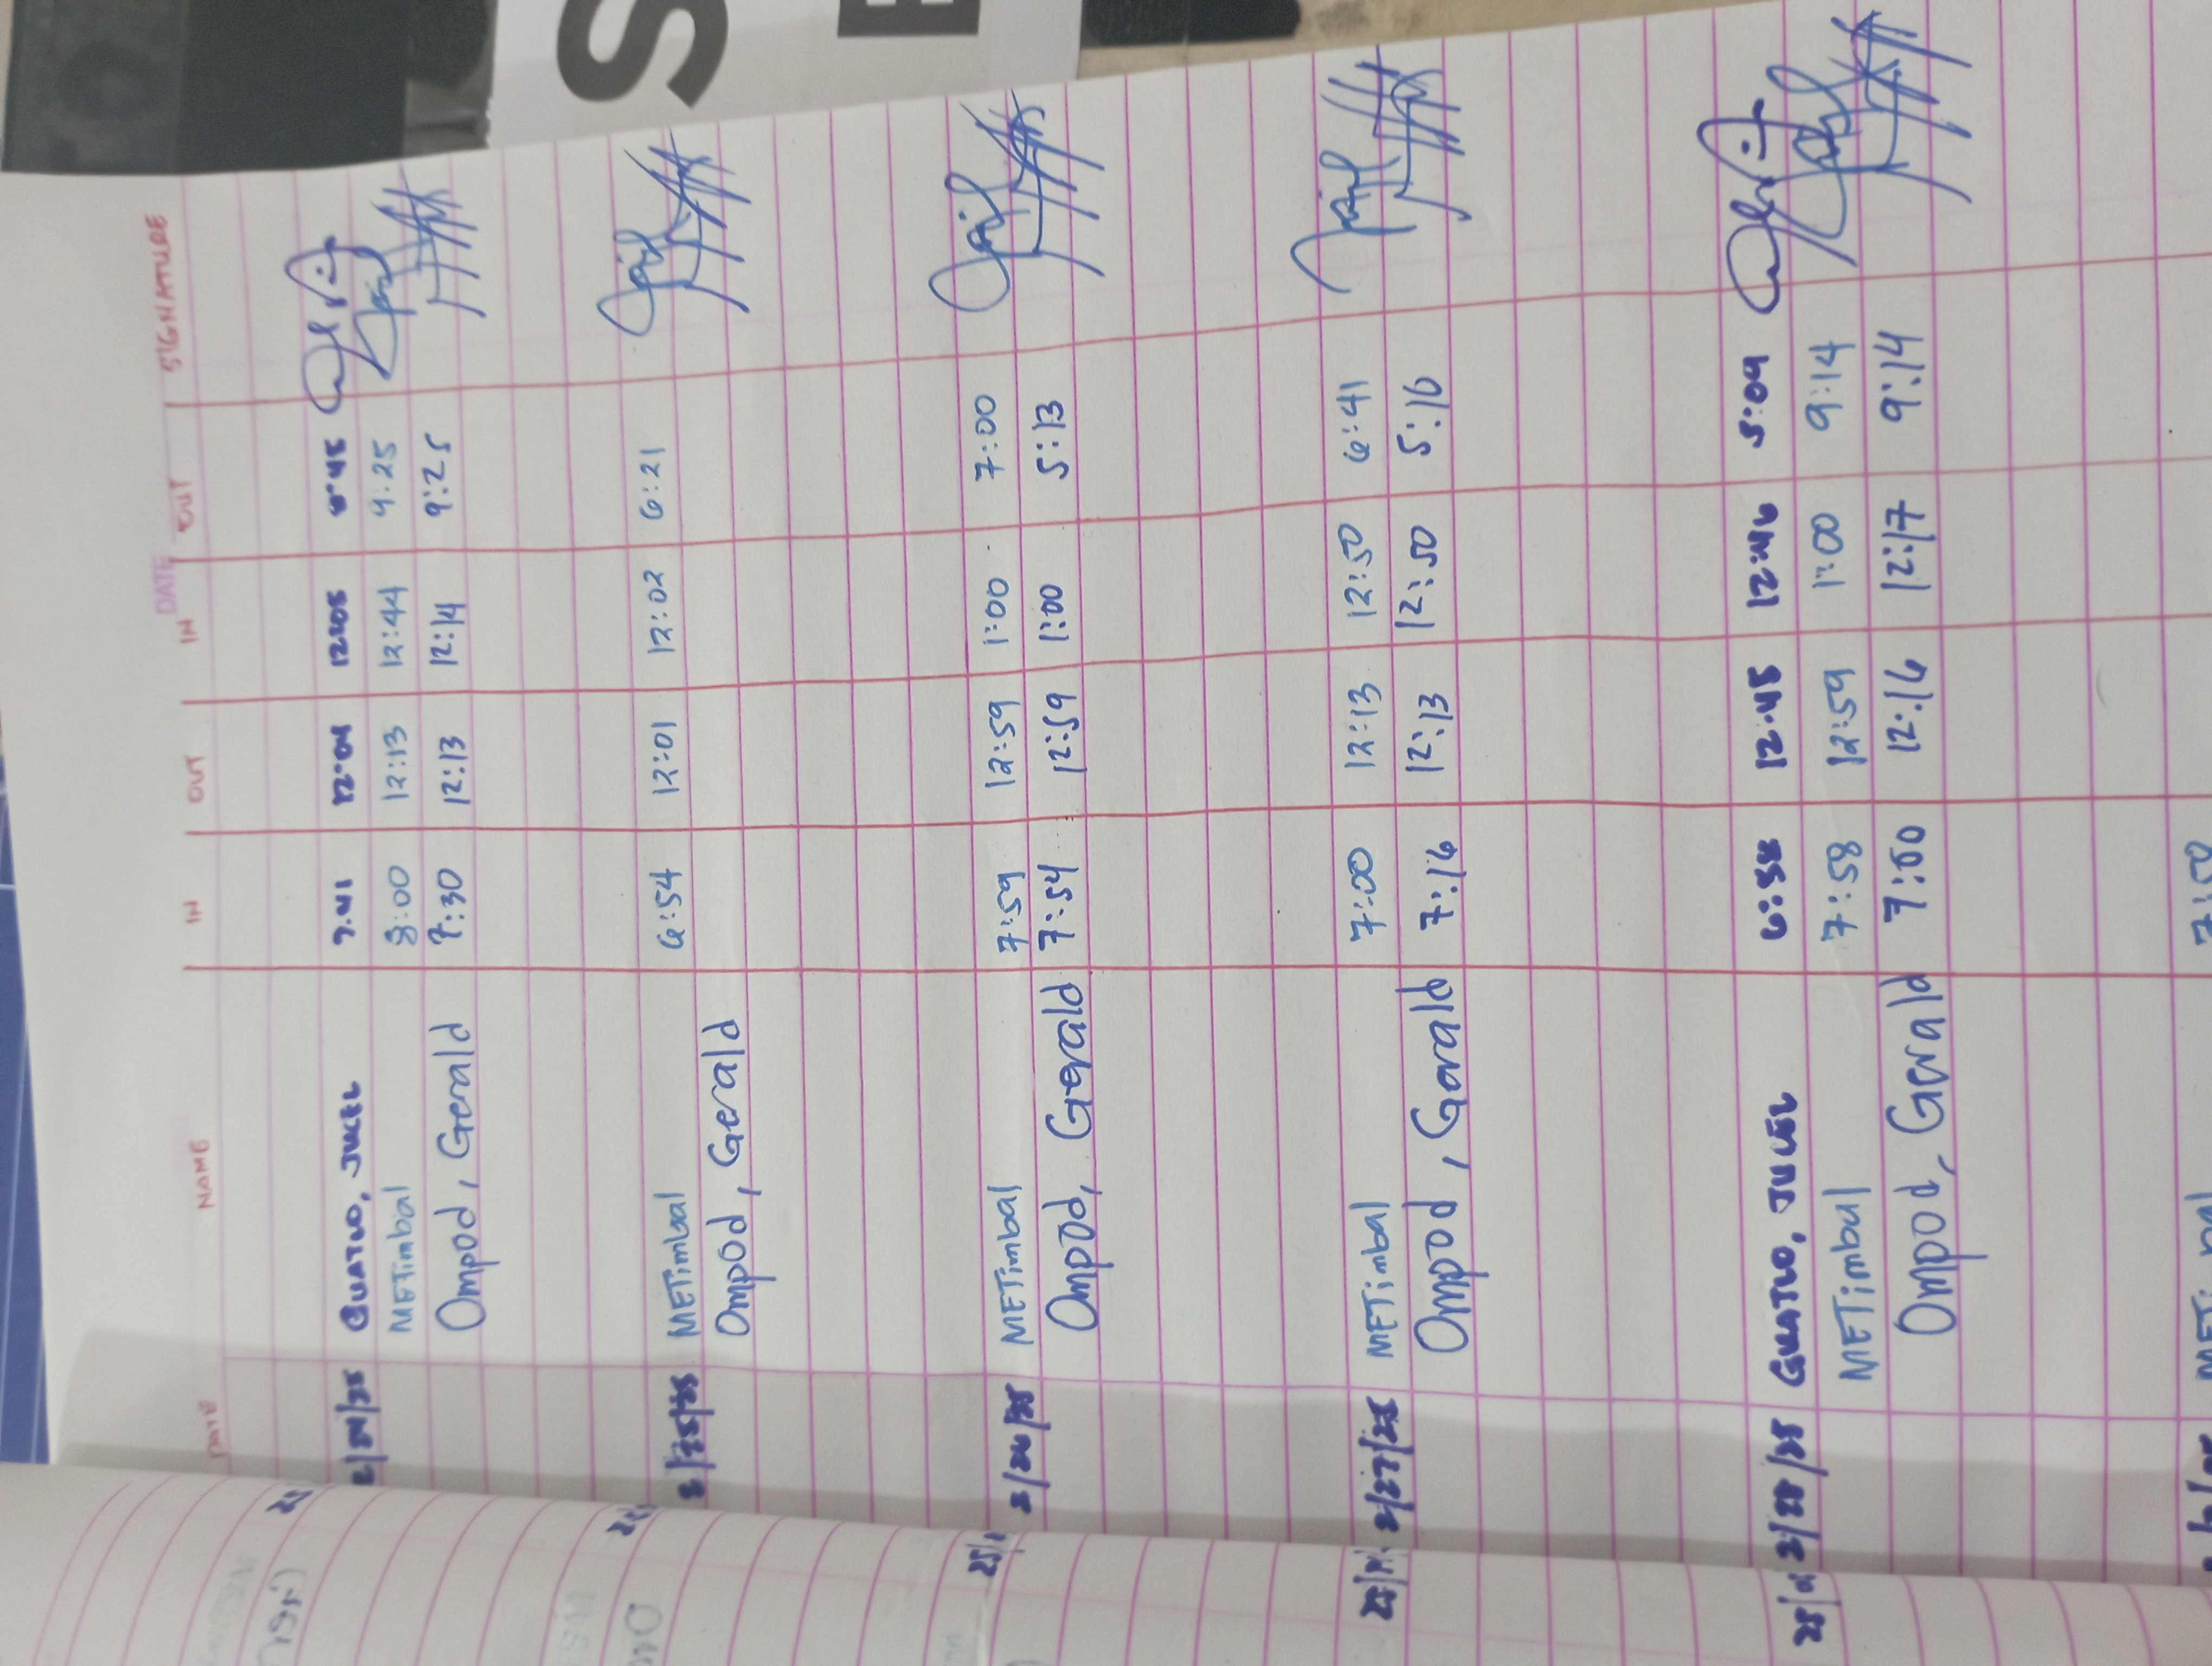 DATE
DATE NAME IN OUT IN OUT SIGNATURE
2/24/25 GUATNO, JUCEL 7:41 12:04 12:05
METimbal 8:00 12:13 12:44 9:25
Ompod, Gerald 7:30 12:13 12:14 9:25
2/25/25 METimbal 6:54 12:01 12:02 6:21
Ompod, Gerald
2/26/25 METimbal 7:59 12:59 1:00 7:00
Ompod, Gerald 7:54 12:59 1:00 5:13
2/27/25 METimbal 7:00 12:13 12:50 6:41
Ompod, Gerald 7:16 12:13 12:50 5:16
2/28/25 GUATNO, JUCEL 6:55 12:45 12:46 5:04
METimbal 7:58 12:59 1:00 9:14
Ompod, Gerald 7:00 12:16 12:17 9:14